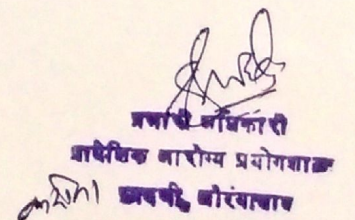 प्रभारी अधिकारी
प्रादेशिक आरोग्य प्रयोगशाळा
छावणी, औरंगाबाद